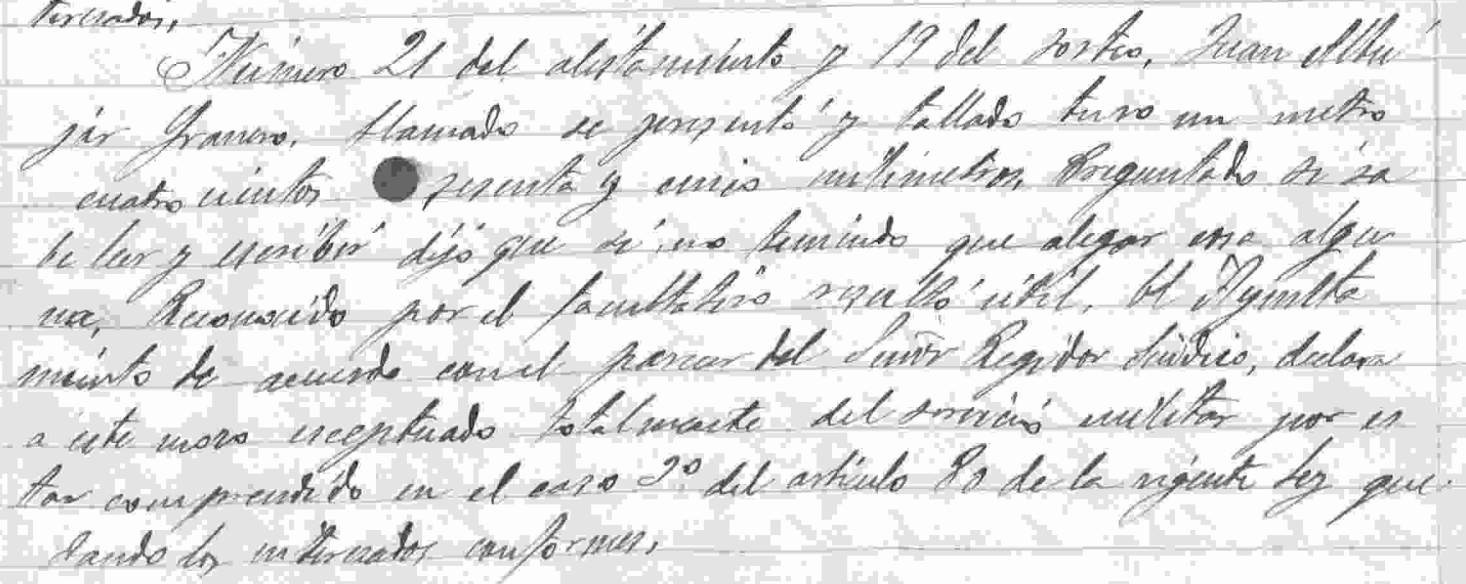 teresados,
Número 21 del alistamiento y 19 del sorteo, Juan Albu
jár Granero, llamado se presentó y tallado tuvo un metro
cuatro cientos sesenta y cinco milimetros. Preguntado si sa
be leer y escribir dijo que si no teniendo que alegar cosa algu
na, Reconocido por el facultativo resultó útil. El Ayunta
miento de acuerdo con el parecer del Señor Regidor Sindico, declara
a este mozo exceptuado totalmente del servicio militar por es
tar comprendido en el caso 2º del artículo 80 de la vigente Ley que
dando los interesados conformes.